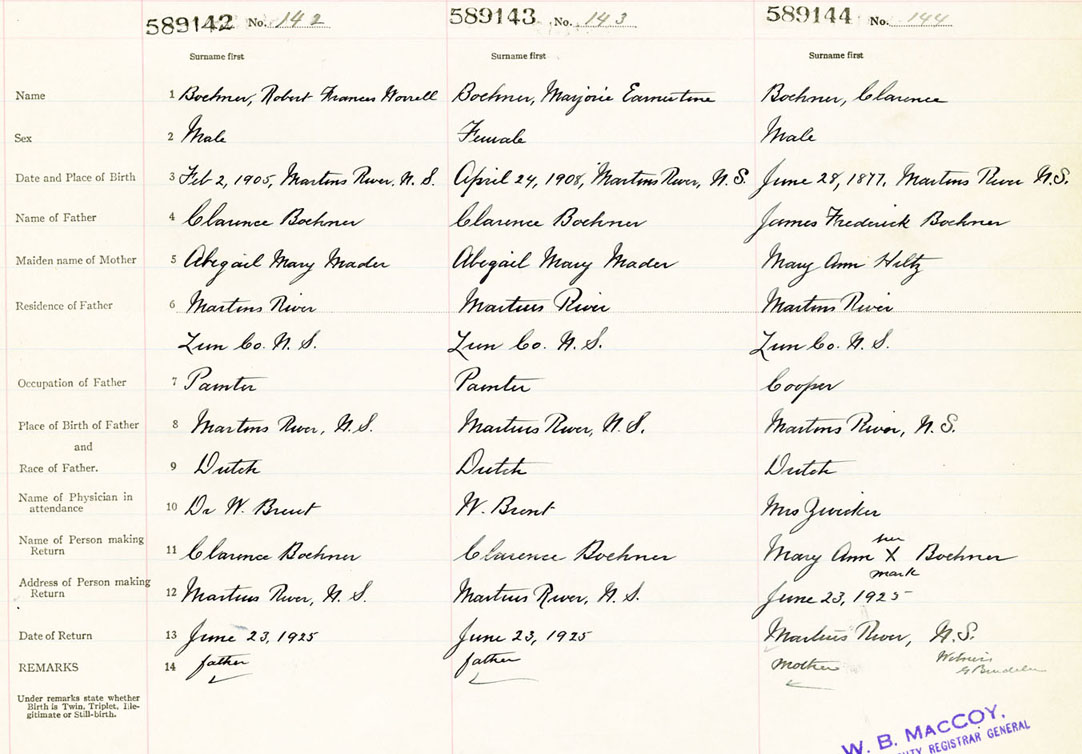 589142 No. 142 589143 No. 143 589144 No. 144
Surname first Surname first Surname first
Name 1 Boehner, Robert Frances Worrell Boehner, Marjorie Earnestine Boehner, Clarence
Sex 2 Male Female Male
Date and Place of Birth 3 Feb 2, 1905, Martins River, N. S. April 24, 1908, Martins River, N. S. June 28, 1877, Martins River N.S.
Name of Father 4 Clarence Boehner Clarence Boehner James Frederick Boehner
Maiden name of Mother 5 Abegail Mary Mader Abegail Mary Mader Mary Ann Hiltz
Residence of Father 6 Martins River Martins River Martins River
Lun Co. N. S. Lun Co. N. S. Lun Co. N. S.
Occupation of Father 7 Painter Painter Cooper
Place of Birth of Father 8 Martins River, N. S. Martins River, N. S. Martins River, N. S.
and
Race of Father. 9 Dutch Dutch Dutch
Name of Physician in
attendance 10 Dr W. Brent W. Brent Mrs Zwicker
Name of Person making
Return 11 Clarence Boehner Clarence Boehner Mary Ann her X mark Boehner
Address of Person making
Return 12 Martins River, N. S. Martins River, N. S. June 23, 1925
Date of Return 13 June 23, 1925 June 23, 1925 Martins River, N.S.
REMARKS 14 father father mother Witness
Under remarks state whether
Birth is Twin, Triplet, Ille-
gitimate or Still-birth.
W. B. MACCOY,
REGISTRAR GENERAL